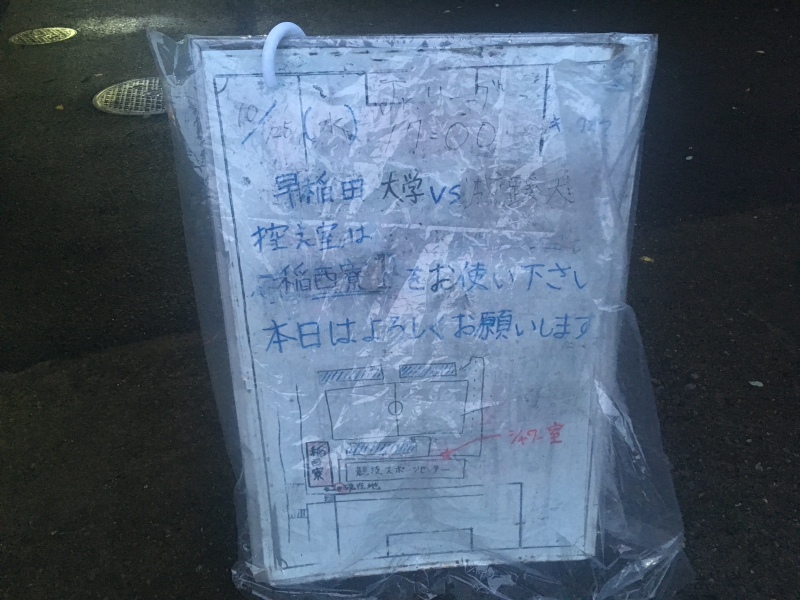 リーグ
10/25(水) 17:00
早稲田 大学 vs
控え室は
稲西寮 をお使い下さい
本日はよろしくお願いします
シャワー室
稲西寮
スポーツセンター
現在地